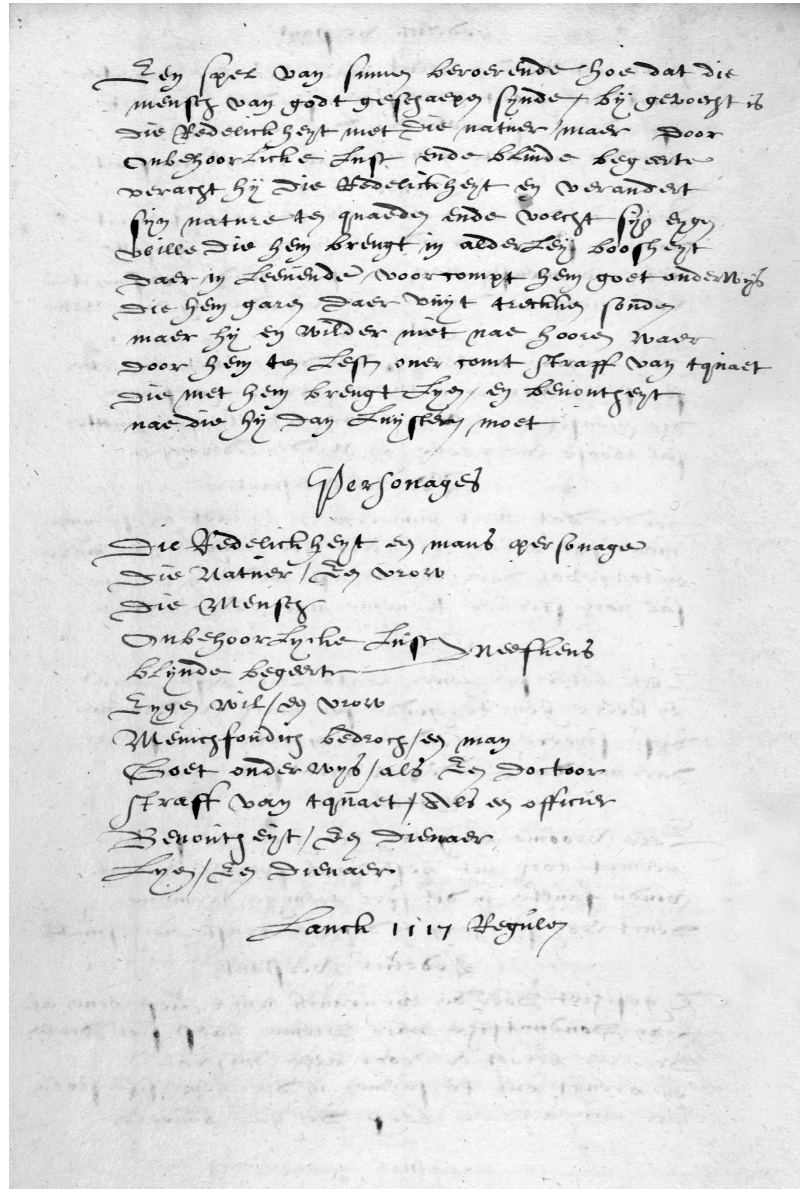 Een spel van sinnen beroerende hoe dat die
mensch van godt geschaepen synde / by gevoecht is
die Redelickheyt met die natuer / maer door
onbehoorlicke lust ende blinde begeerte
veracht hy die Redelickheyt en verandert
syn nature ten quaeden ende volcht syn eygen
wille die hem brengt in alderley boosheyt
daer in levende / voorcompt hem goet onderwys
die hem garen daer vuyt trecken souden
maer hy en wilder niet nae hooren waer
door hem ten lesten over comt straff van tquaet
die met hem brengt Lyen / en benoutheyt
nae die hy dan luysteren moet
Personages
Die Redelickheyt en mans personage
Die Natuer / Een vrow
Die Mensch
Onbehoorlycke lust
blynde begeert neefkens
Eygen wil / en vrow
Menichfondich bedroch / en man
Goet onderwys / als Een doctoor
straff van tquaet / Als een officier
Benoutheyt / Een dienaer
Lyen / Een dienaer
Lanck 1117 Regulen